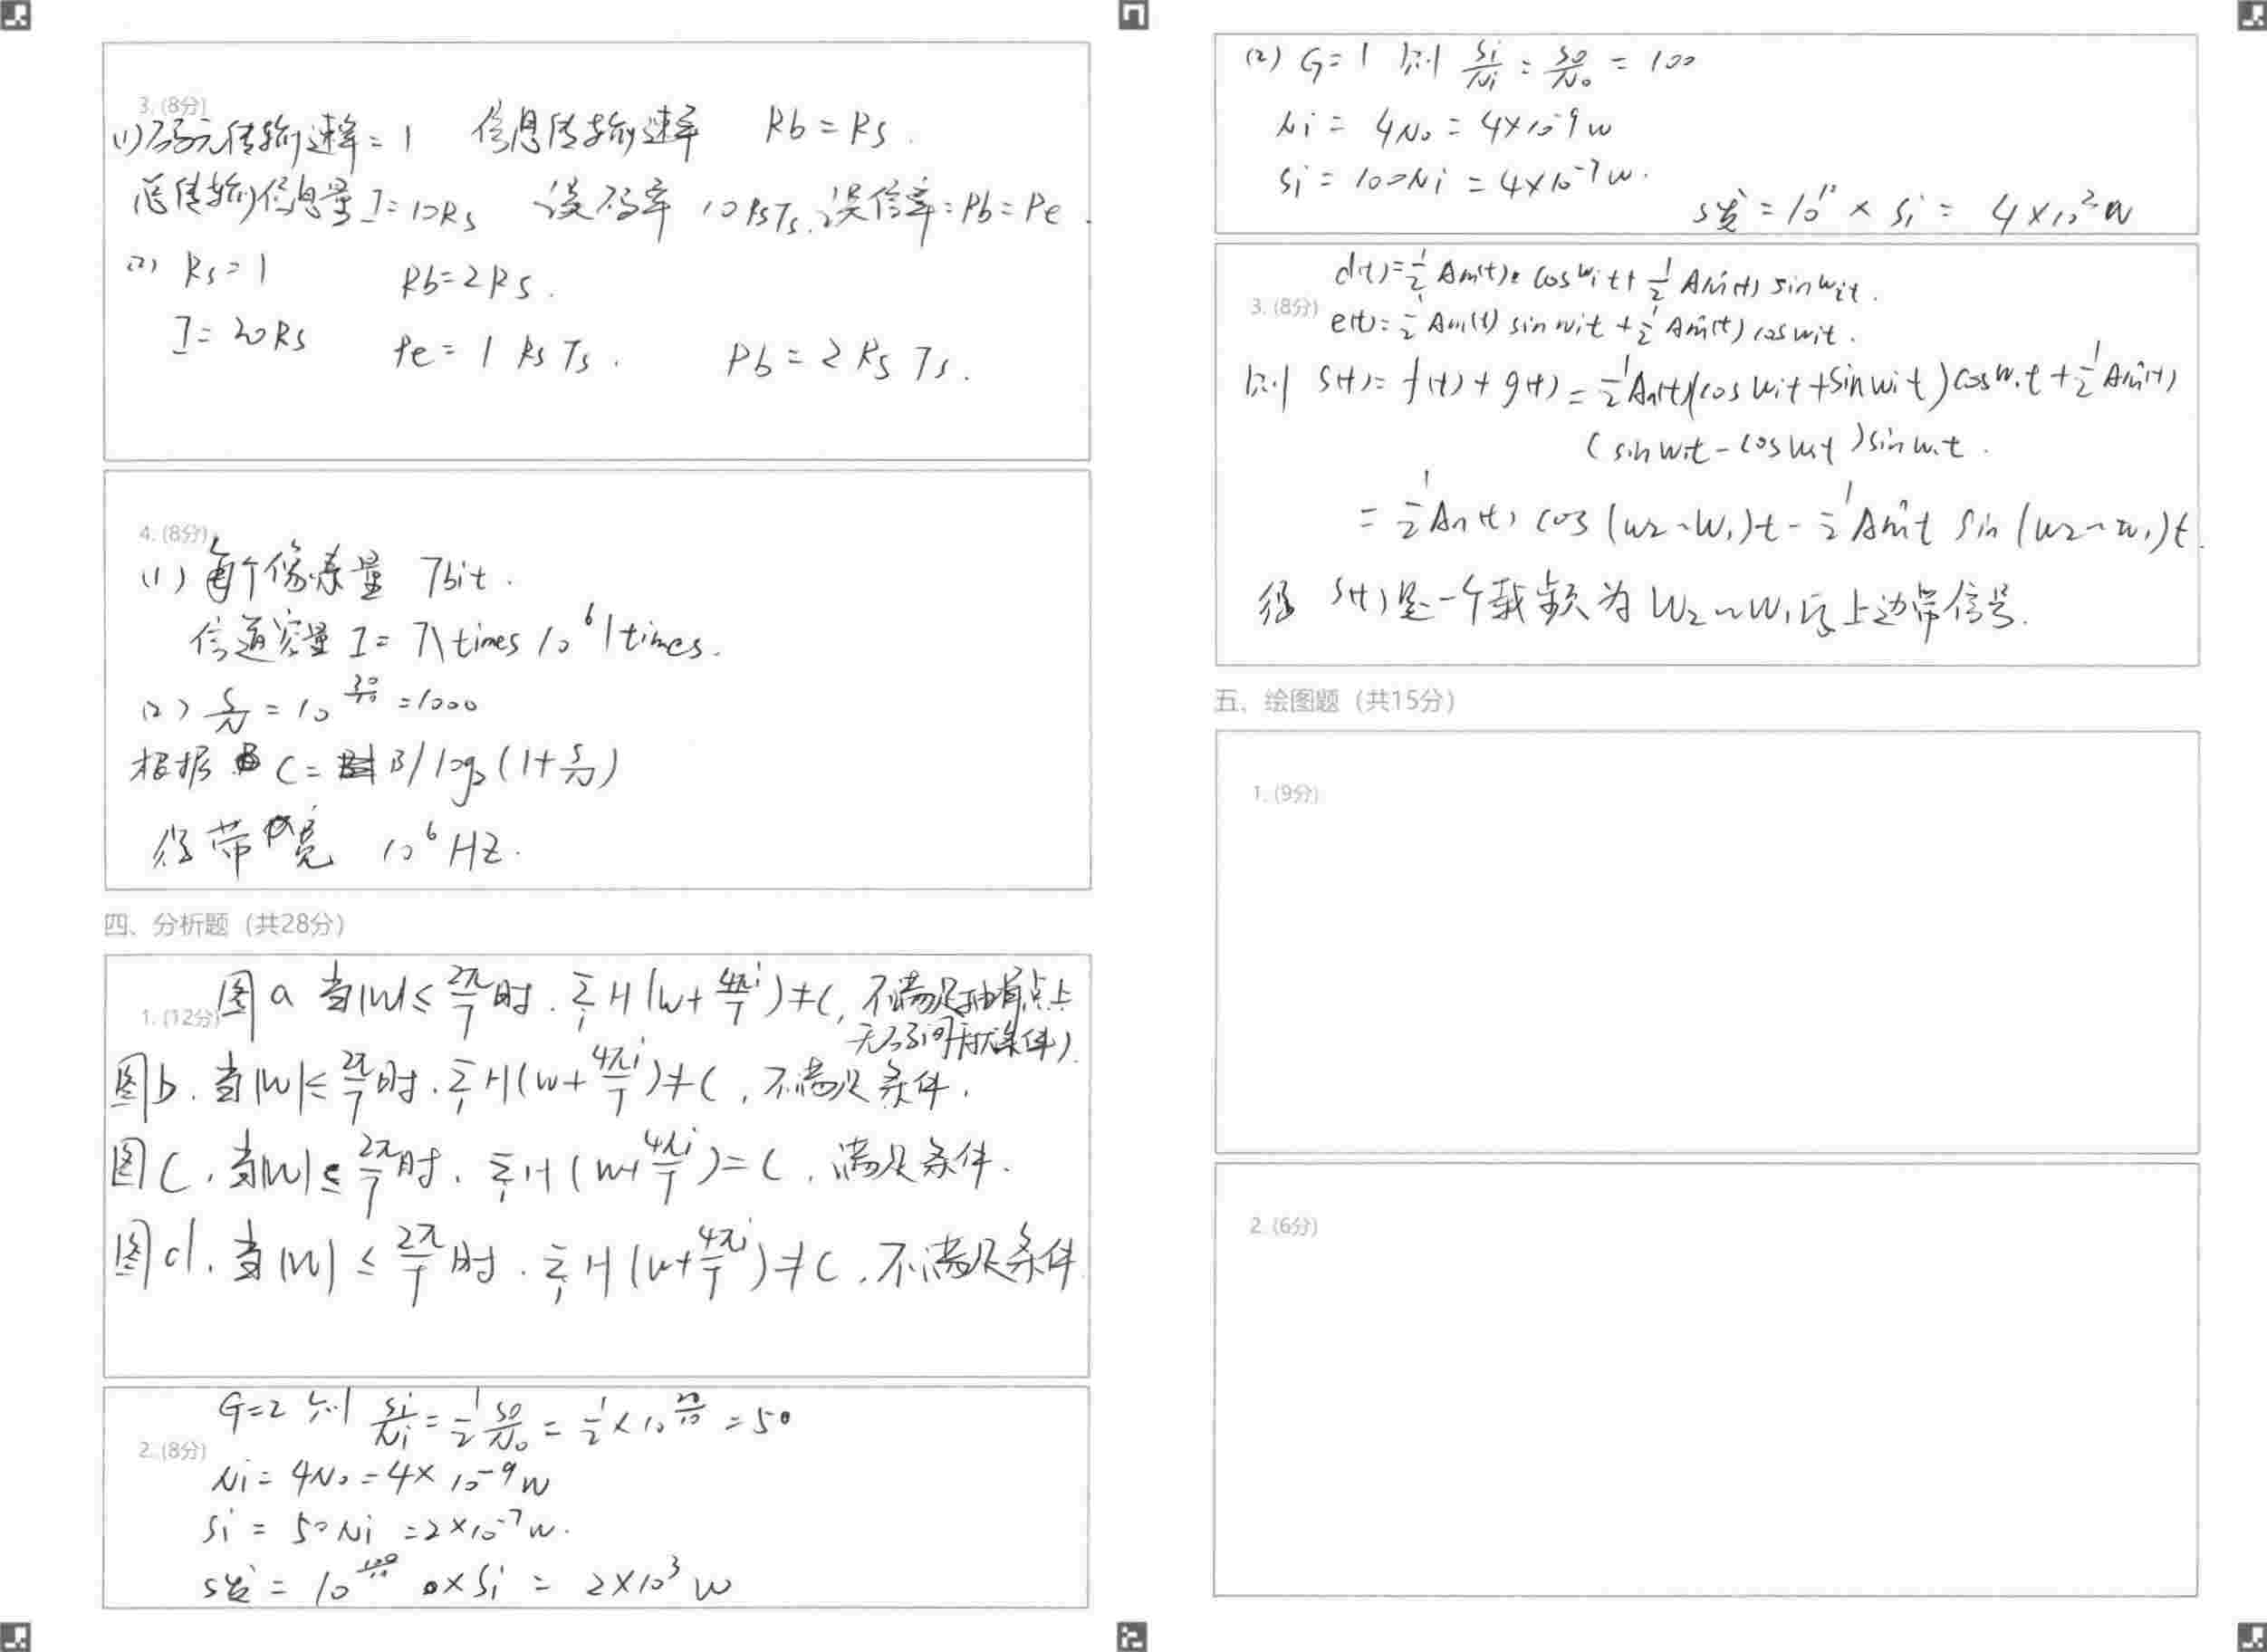 3. (8分)
(1) 码元传输速率 = 1 信息传输速率 Rb = Rs .
总传输信息量 I = 10Rs 误码率 10RsTs. 误信率 = Pb = Pe .
(2) Rs = 1 Rb = 2Rs .
I = 20Rs Pe = 1 Rs Ts . Pb = 2 Rs Ts .
4. (8分)
(1) 每个像素量 7bit .
信道容量 I = 7\times 10^6 \times.
(2) S/N = 10^(30/10) = 1000
根据 C = B log2 (1 + S/N)
得带宽 10^6 HZ .
四、分析题（共28分）
1. (12分)
图a 当|W| ≤ 2π/T 时 . Σi H(w + 4πi/T) ≠ C, 不满足抽样点上
无码间干扰条件)
图b . 当|W| ≤ 2π/T 时 . Σi H(w + 4πi/T) ≠ C , 不满足条件 .
图C . 当|W| ≤ 2π/T 时 . Σi H(w + 4πi/T) = C , 满足条件 .
图d . 当|W| ≤ 2π/T 时 . Σi H(w + 4πi/T) ≠ C , 不满足条件
G = 2 则 Si/Ni = 1/2 So/No = 1/2 × 10^(20/10) = 50
2. (8分)
Ni = 4No = 4 × 10^-9 w
Si = 50 Ni = 2 × 10^-7 w .
S发 = 10^(100/10) × Si = 2 × 10^3 w
(2) G = 1 则 Si/Ni = So/No = 100
Ni = 4No = 4 × 10^-9 w
Si = 100Ni = 4 × 10^-7 w .
S发 = 10^10 × Si = 4 × 10^3 w
d(t) = 1/2 Am(t) cos wit + 1/2 Am̂(t) sin wit .
3. (8分)
e(t) = 1/2 Am(t) sin wit + 1/2 Am̂(t) cos wit .
则 S(t) = f(t) + g(t) = 1/2 Am(t)(cos wit + sin wit) cos w.t + 1/2 Am̂(t)
(sin wit - cos wit) sin w.t .
= 1/2 Am(t) cos (w2 - w1)t - 1/2 Am̂t sin (w2 - w1)t .
得 S(t) 是一个载频为 W2 - W1 的上边带信号 .
五、绘图题（共15分）
1. (9分)
2. (6分)